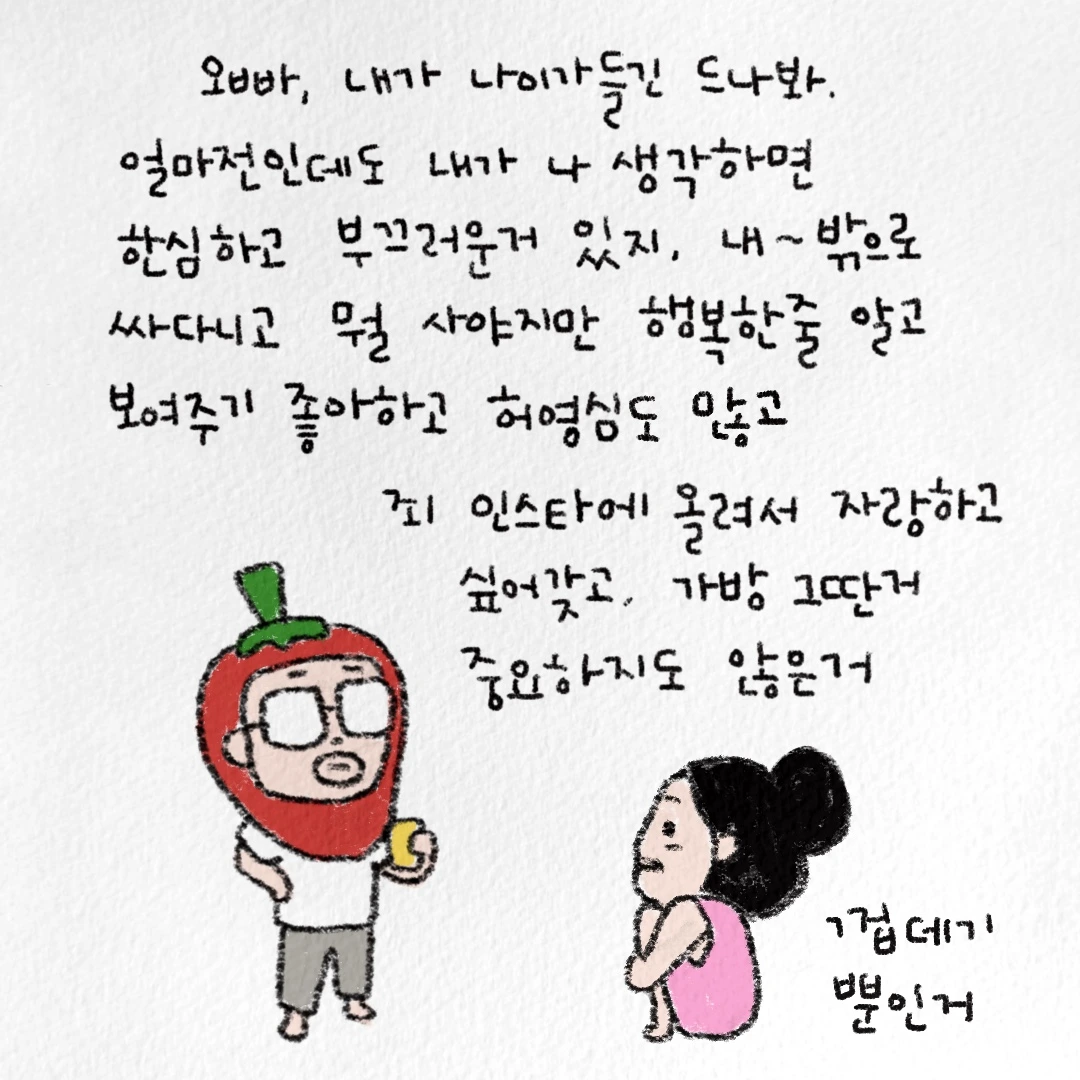 오빠, 내가 나이가들긴 드나봐.
얼마전인데도 내가 나 생각하면
한심하고 부끄러운거 있지. 내~밖으로
싸다니고 뭘 사야지만 행복한줄 알고
보여주기 좋아하고 허영심도 많고
죄 인스타에 올려서 자랑하고
싶어갖고. 가방 그딴거
중요하지도 않은거
껍데기
뿐인거